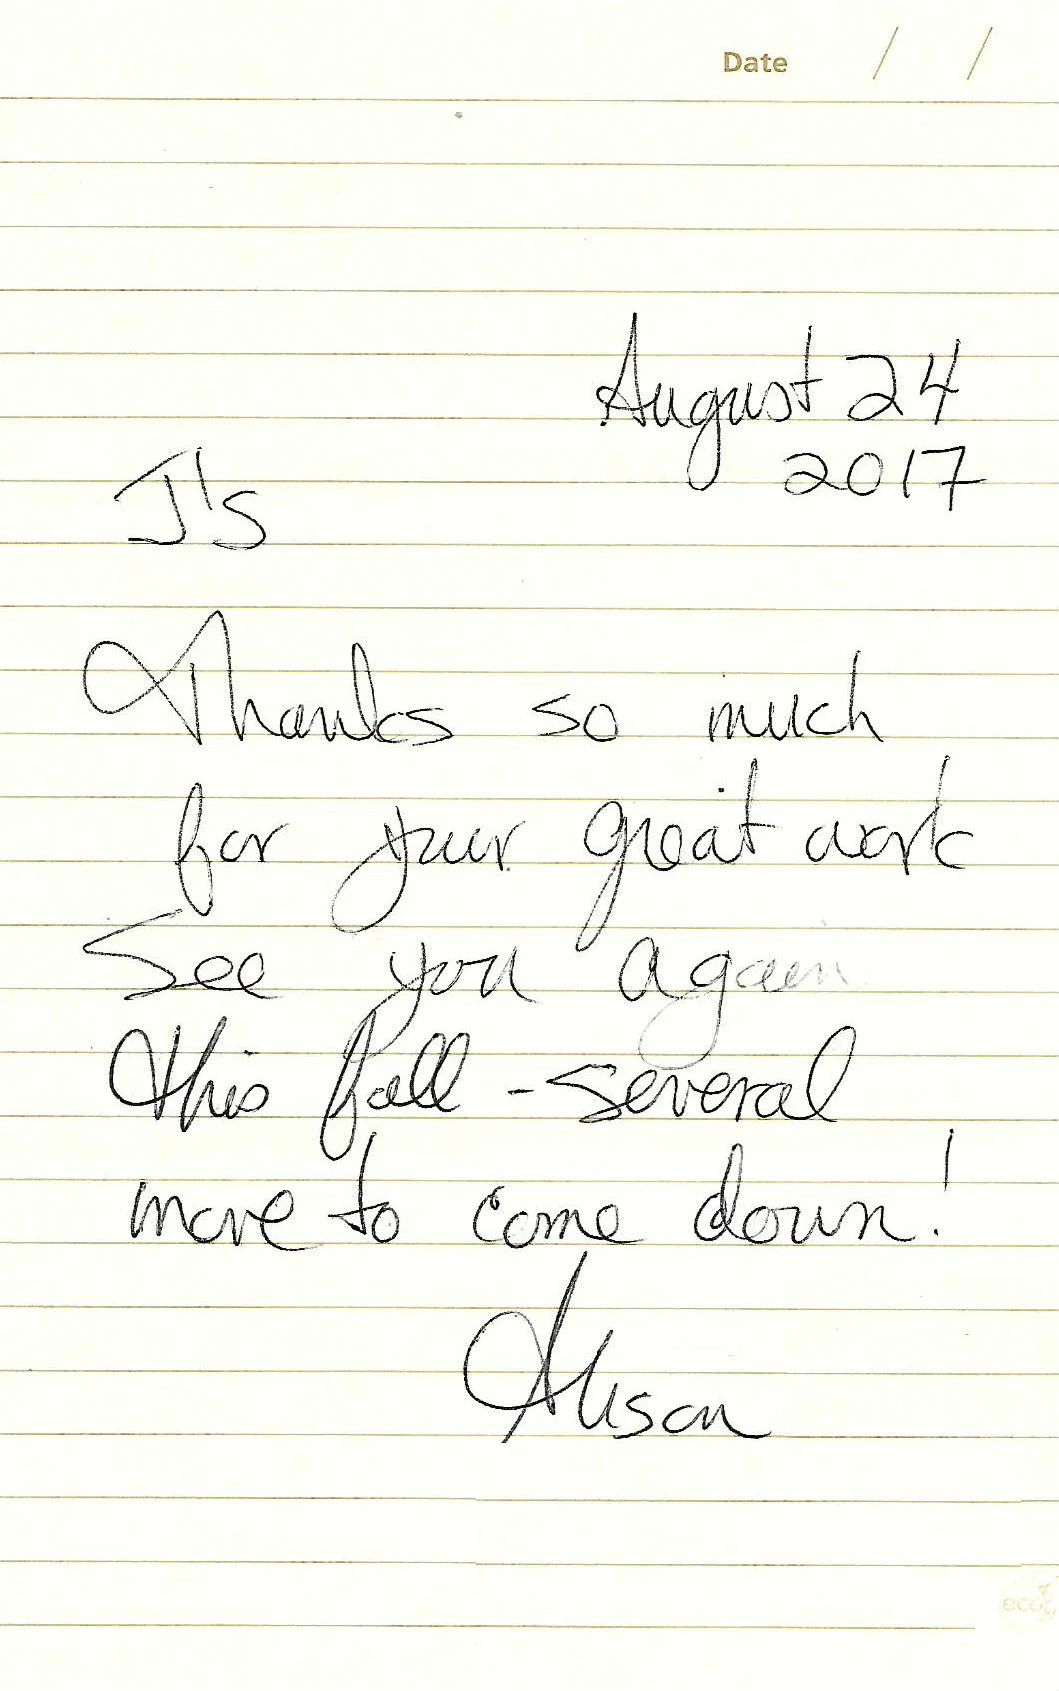 Date / /
August 24
2017
J's
Thanks so much
for your great work
See you again
this fall - several
more to come down!
Alison
eco